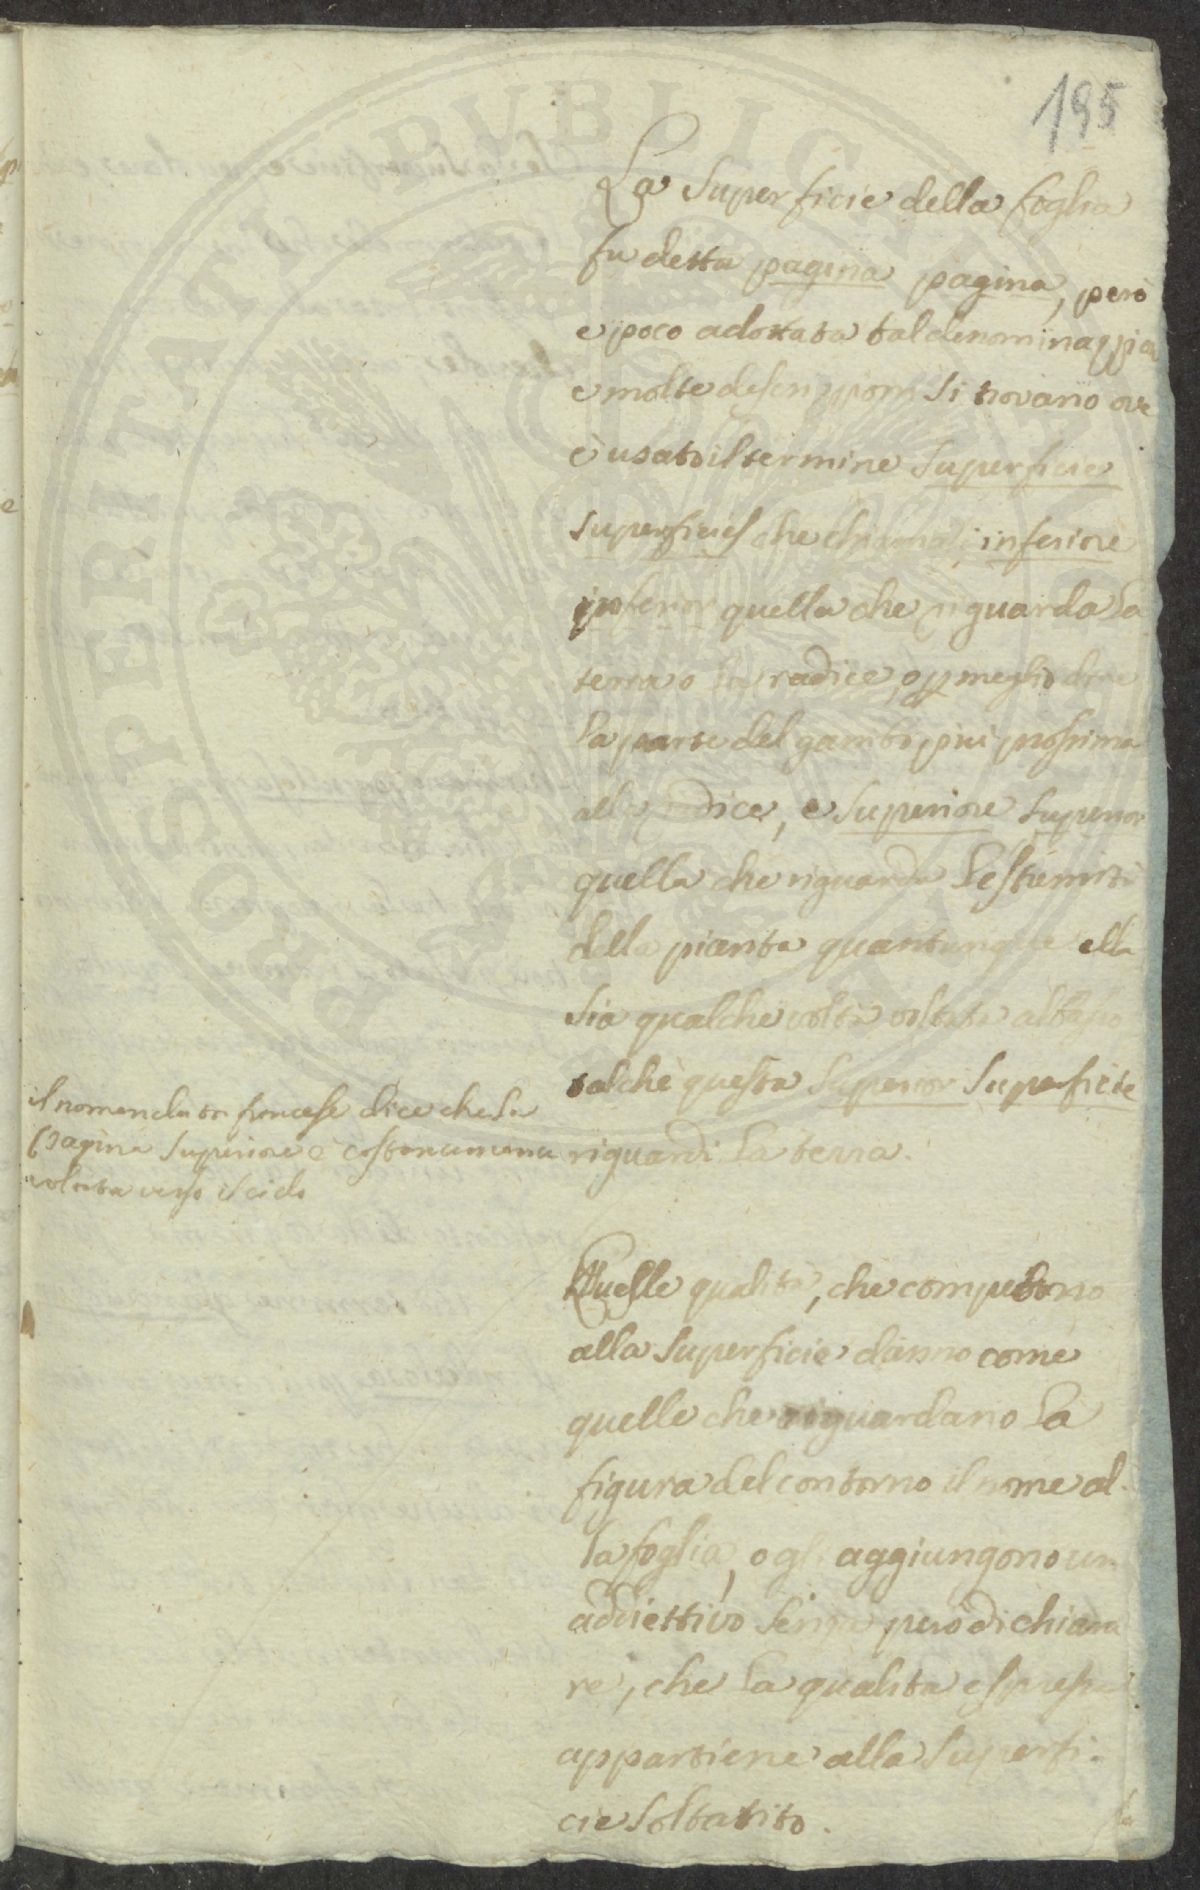 195
La Superficie della foglia
fu detta pagina pagina, però
e poco adottata tal denominazzion
e molte descrizzioni si trovano ove
è usato il termine Superficie
Superficies che chiamasi inferiore
inferior quella che riguarda la
terra o la radice, o p meglio dire
la parte del gambo piui prossima
alla radice, e Superiore Superior
quella che riguarda l'estremità
della pianta quantunque ella
sia qualche volta voltata al basso
talchè questa Superior Superficie
riguardi la terra.
il nomenclator francese dice che la
Pagina Superiore è costantemente
voltata verso il cielo
Quelle qualità, che competono
alla Superficie danno come
quelle che riguardano la
figura del contorno il nome al-
la foglia, o gli aggiungono un
addiettivo senza però dichiara
re, che la qualita espressa
appartiene alla Superfi-
cie soltanto.
PROSPERITATI PUBLICAE